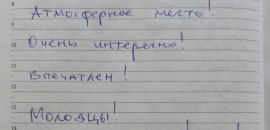 Атмосферное место!
Очень интересно!
Впечатлен!
Молодцы!